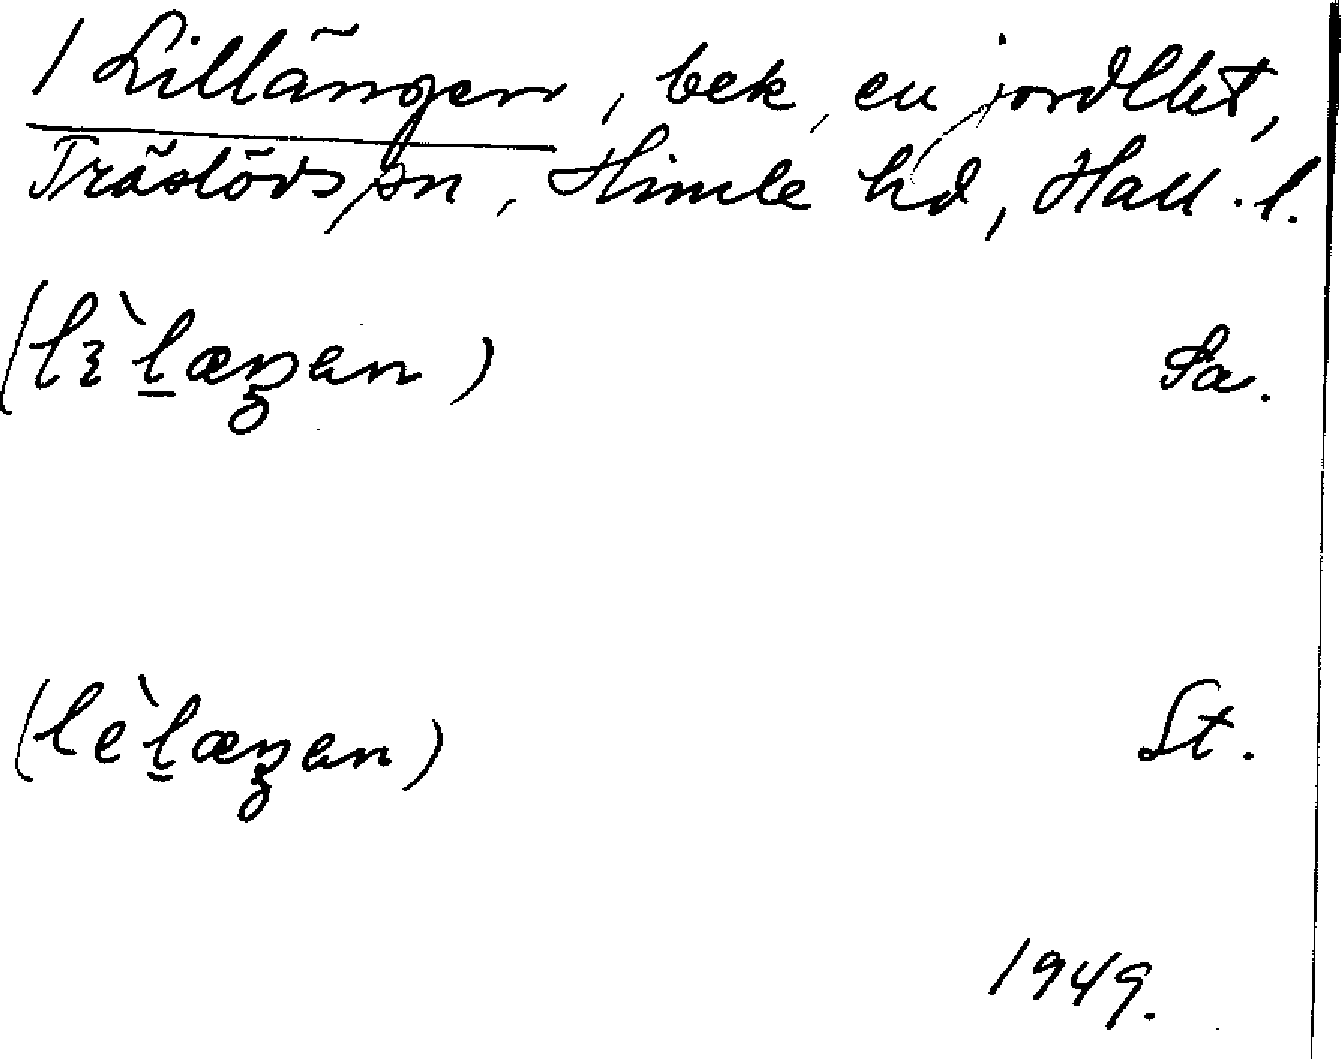 1 Lillängen, bek, en jordlht,
Träslövs sn, Himle hd, Hall. l.
(lɛ̀l̠æŋen) Fa.
(lèl̠æŋen) St.
1949.